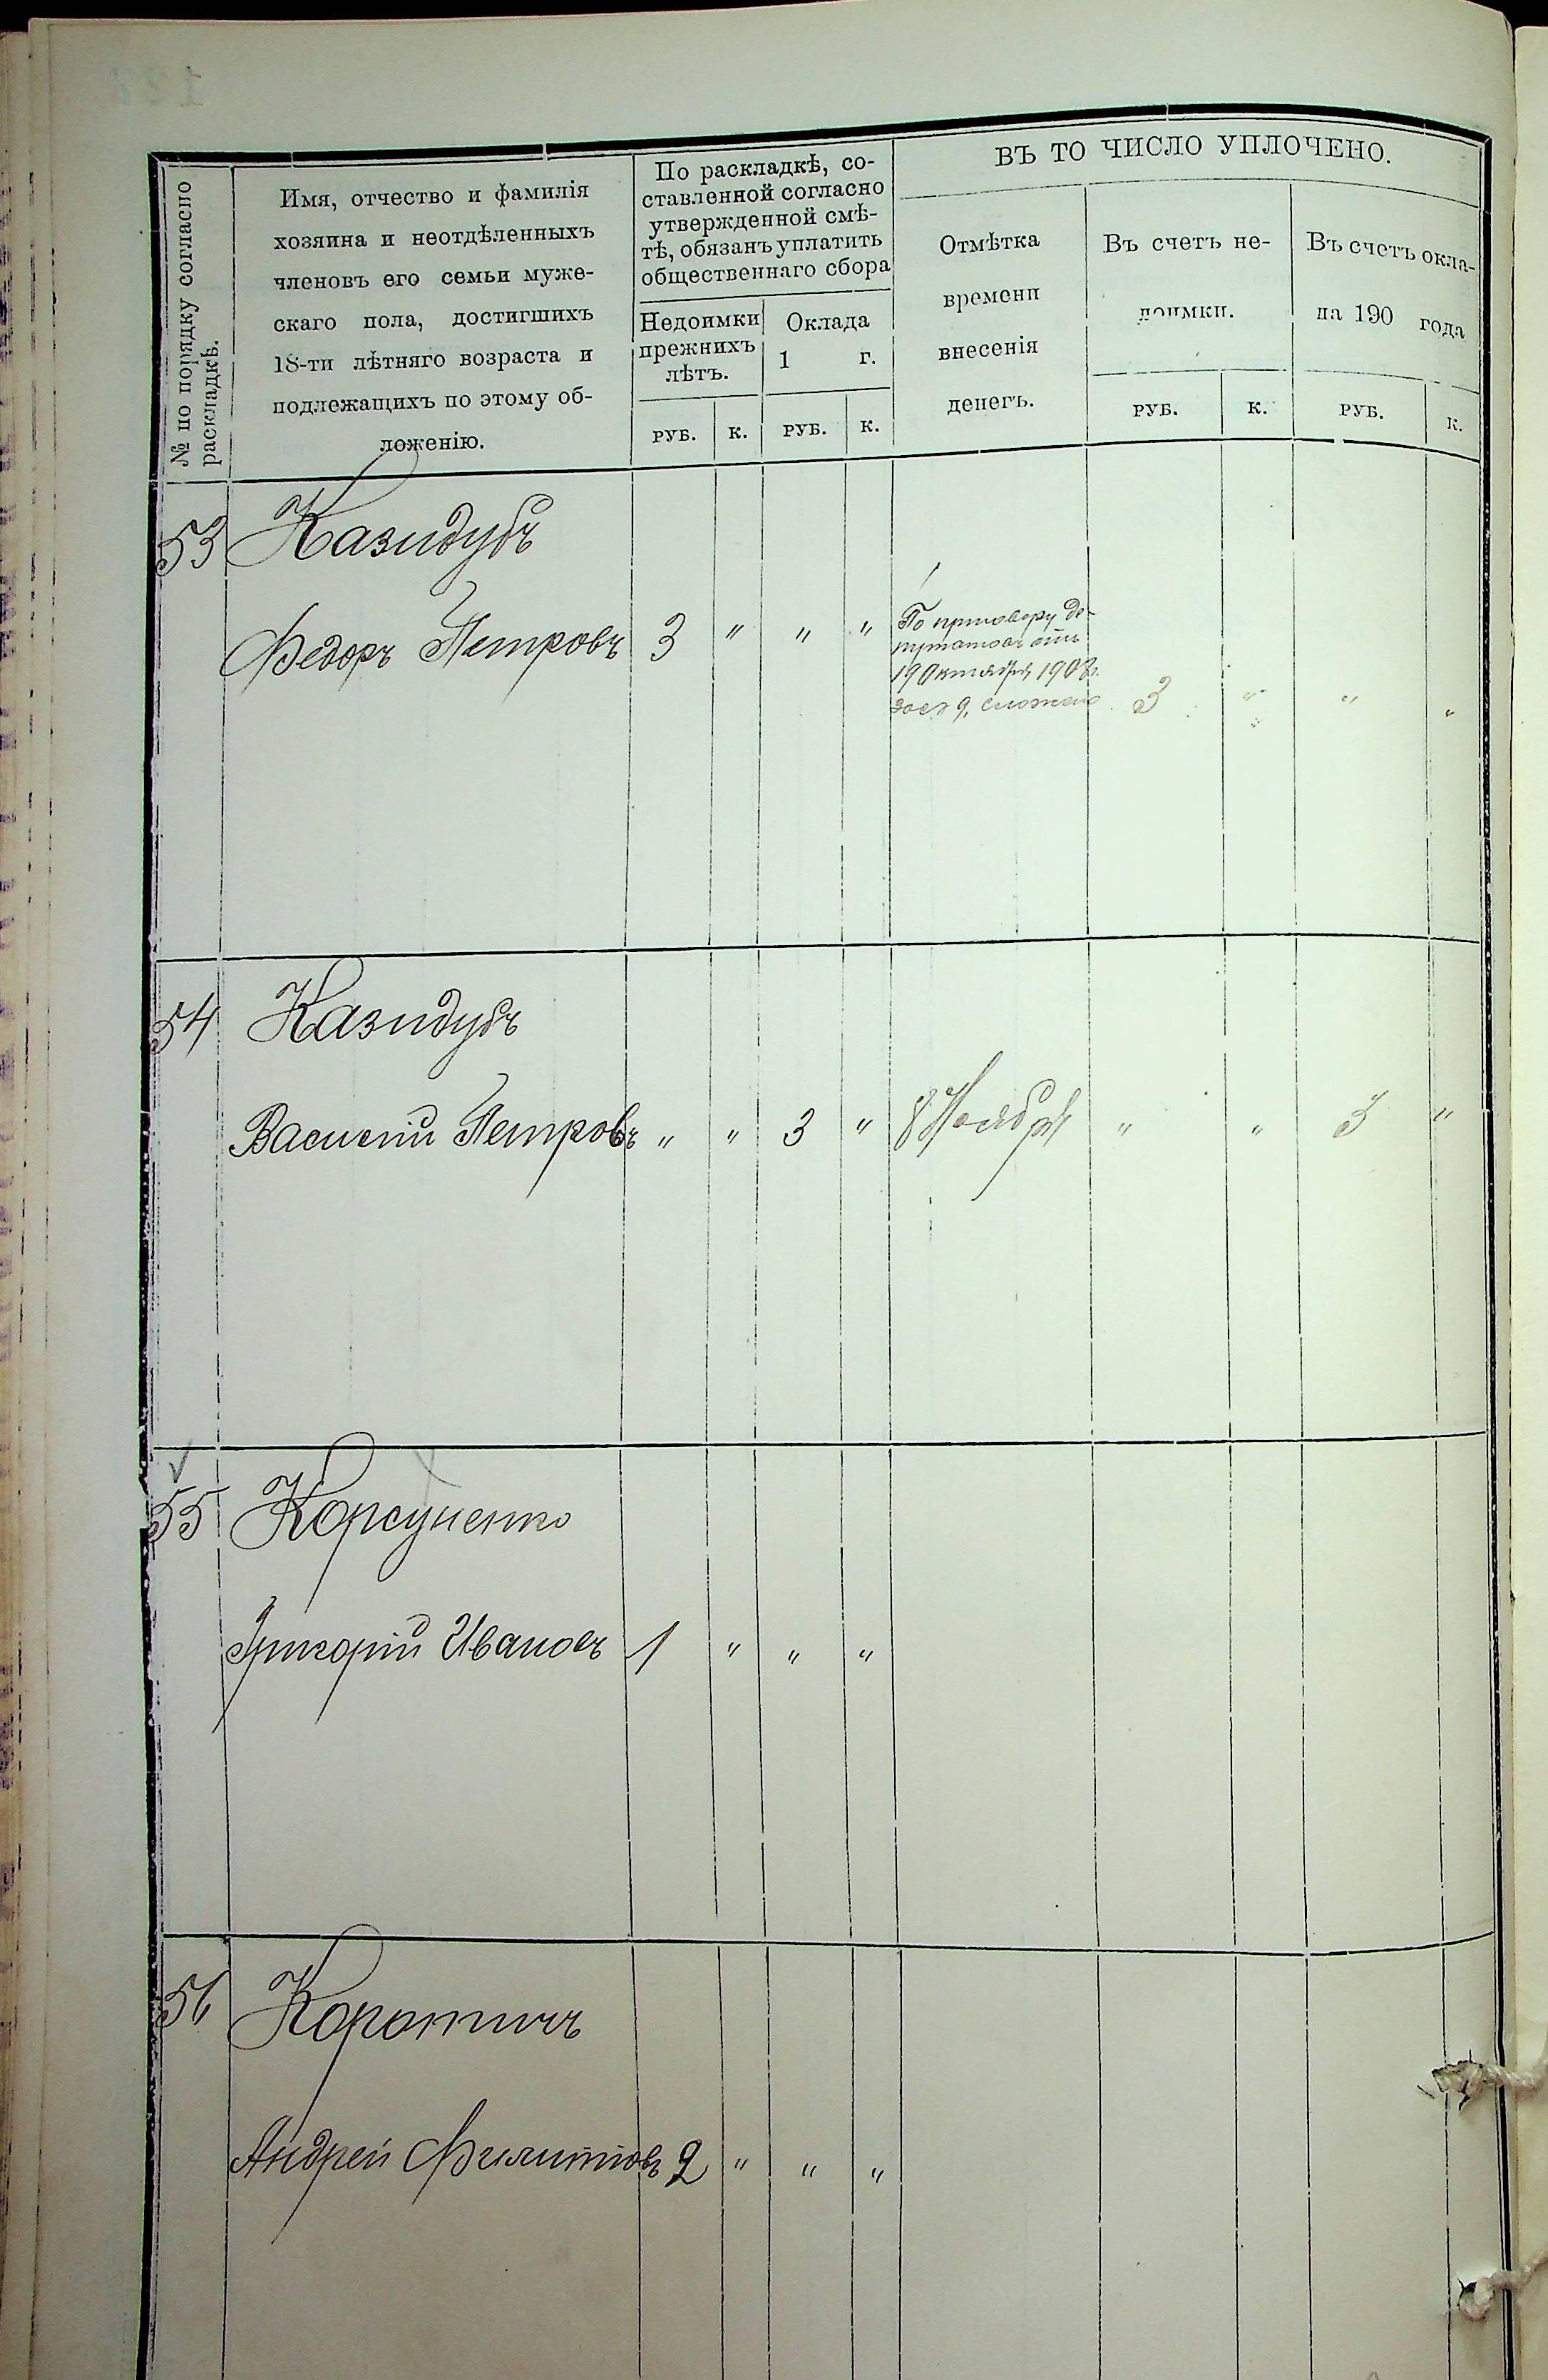 № по порядку согласно
раскладкѣ.
Имя, отчество и фамилія
хозяина и неотдѣленныхъ
членовъ его семьи муже-
скаго пола, достигшихъ
18-ти лѣтняго возраста и
подлежащихъ по этому об-
ложенію.
По раскладкѣ, со-
ставленной согласно
утвержденной смѣ-
тѣ, обязанъ уплатить
общественнаго сбора
Недоимки
прежнихъ
лѣтъ.
Оклада
1 г.
РУБ. К. РУБ. К.
ВЪ ТО ЧИСЛО УПЛОЧЕНО.
Отмѣтка
времени
внесенія
денегъ.
Въ счетъ не-
доимки.
РУБ. К.
Въ счетъ окла-
на 190 года
РУБ. К.
53 Казидубъ
Федоръ Петровъ 3 " " "
По приговору де-
путатовъ отъ
19 Октября 1908 г.
за № 9, сложено 3 " " "
54 Казидубъ
Василій Петровъ " " 3 " 8 Ноября " " 3 "
55 Корсуненко
Григорій Ивановъ 1 " " "
56 Коротичъ
Андрей Филиповъ 2 " " "